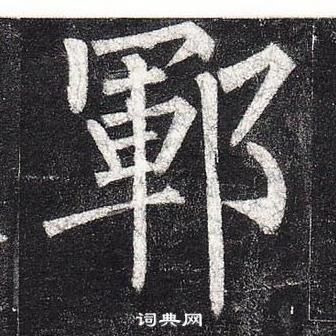 鄆
词典网